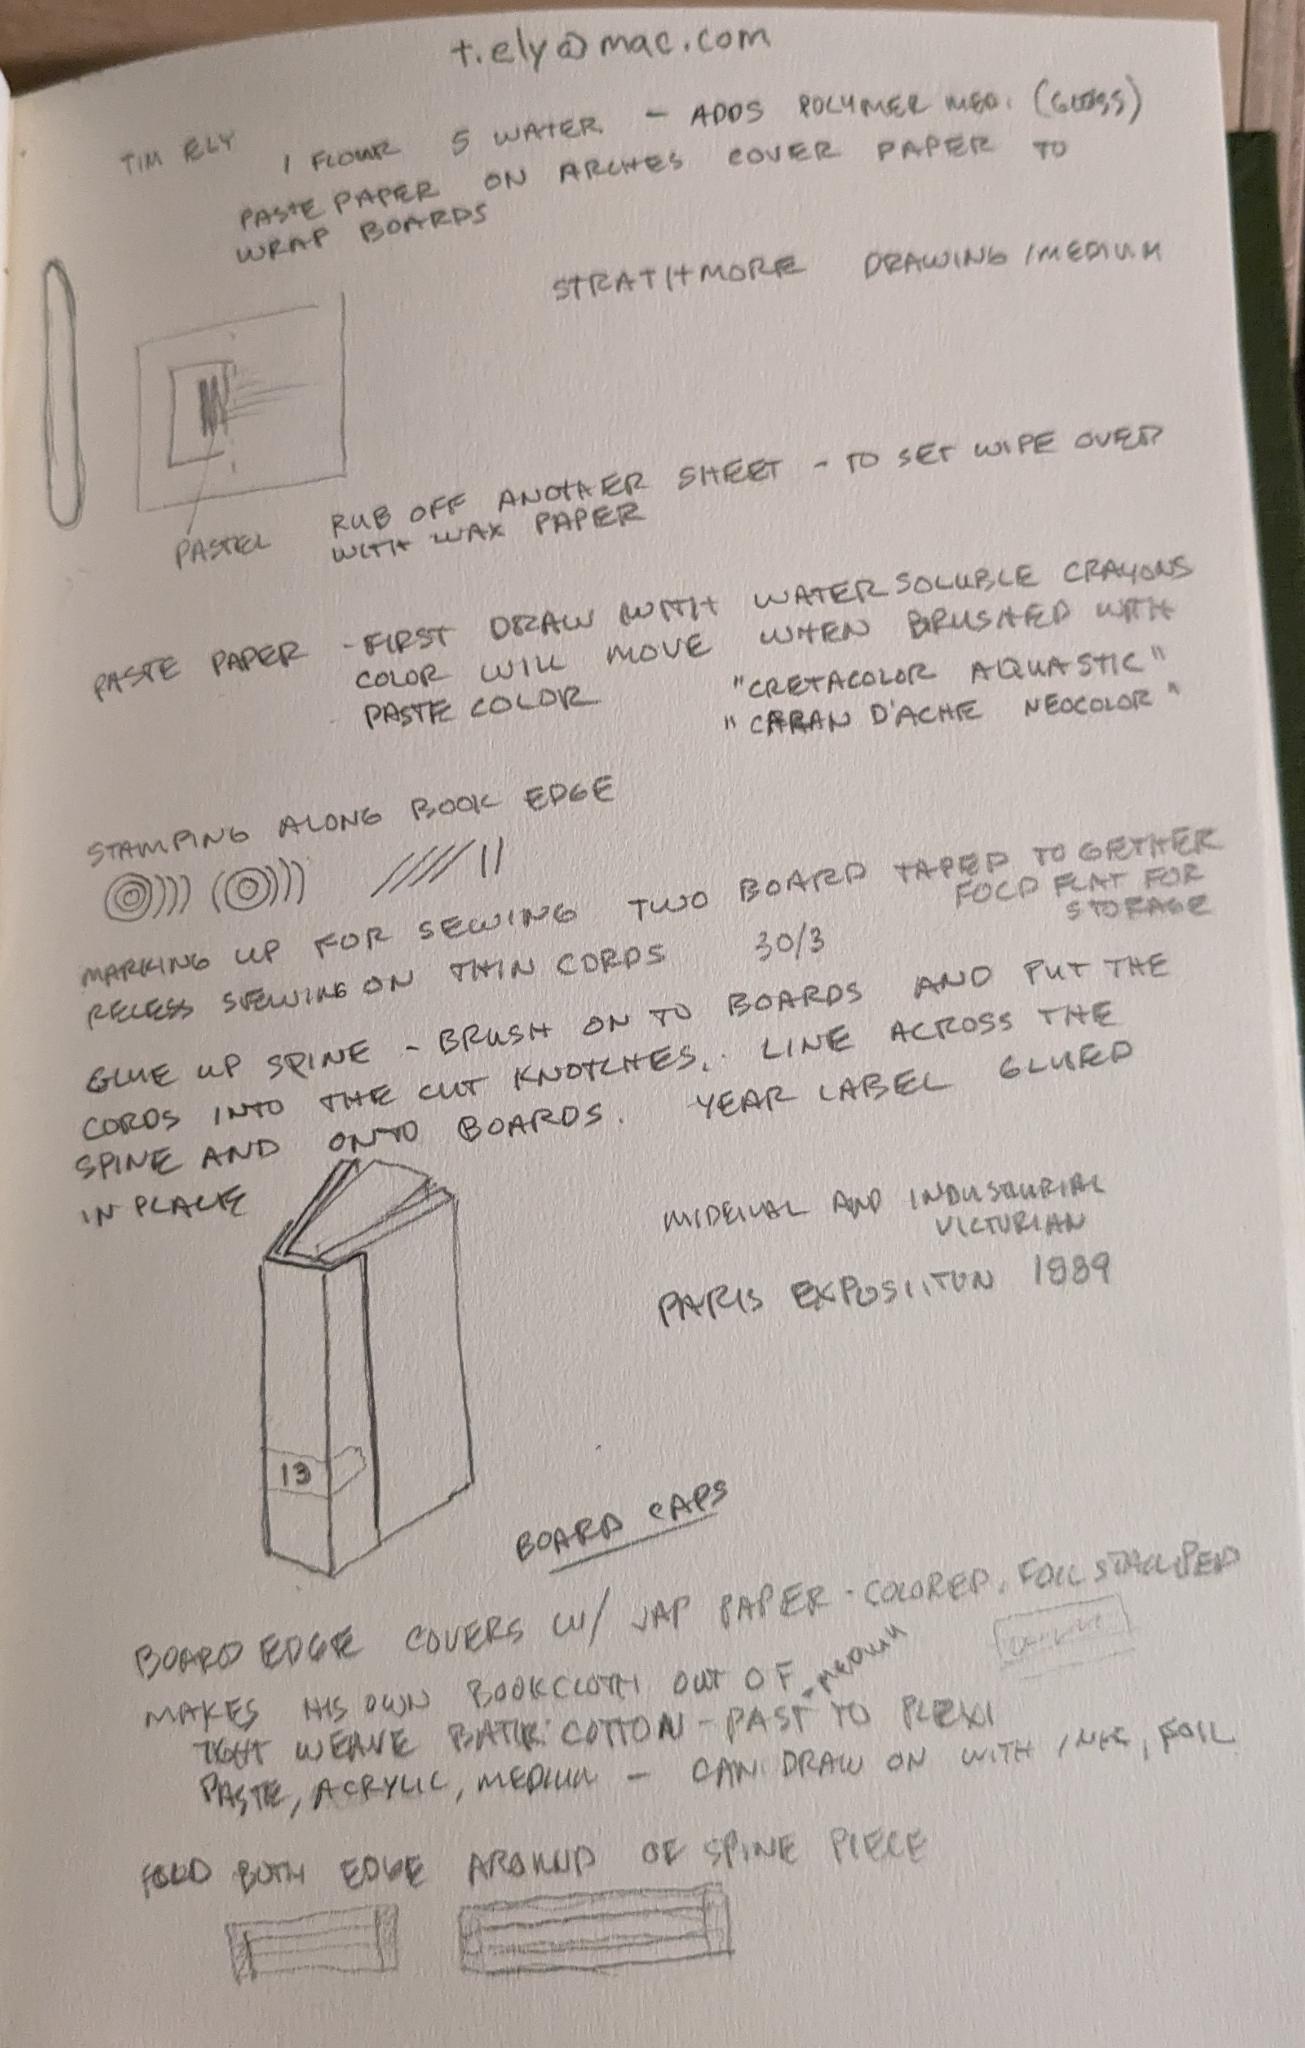 t.ely@mac.com
TIM ELY 1 FLOUR 5 WATER - ADDS POLYMER MED. (GLOSS)
PASTE PAPER ON ARCHES COVER PAPER TO
WRAP BOARDS
STRATHMORE DRAWING/MEDIUM
PASTEL RUB OFF ANOTHER SHEET - TO SET WIPE OVER
WITH WAX PAPER
PASTE PAPER - FIRST DRAW WITH WATER SOLUBLE CRAYONS
COLOR WILL MOVE WHEN BRUSHED WITH
PASTE COLOR "CRETACOLOR AQUASTIC"
"CARAN D'ACHE NEOCOLOR"
STAMPING ALONG BOOK EDGE
MARKING UP FOR SEWING TWO BOARD TAPED TOGETHER
FOLD FLAT FOR
STORAGE
RECESS SEWING ON THIN CORDS 30/3
GLUE UP SPINE - BRUSH ON TO BOARDS AND PUT THE
CORDS INTO THE CUT KNOTCHES. LINE ACROSS THE
SPINE AND ONTO BOARDS. YEAR LABEL GLUED
IN PLACE
MIDEIVAL AND INDUSTURIAL
VICTURIAN
PARIS EXPOSIITON 1889
13
BOARD CAPS
BOARD EDGE COVERS W/ JAP PAPER - COLORED, FOIL STAMPED
MAKES HIS OWN BOOKCLOTH OUT OF
TIGHT WEAVE BATIK COTTON - PAST TO PLEXI
PASTE, ACRYLIC, MEDIUM - CAN DRAW ON WITH INK, FOIL
FOLD BOTH EDGE AROUND OF SPINE PIECE